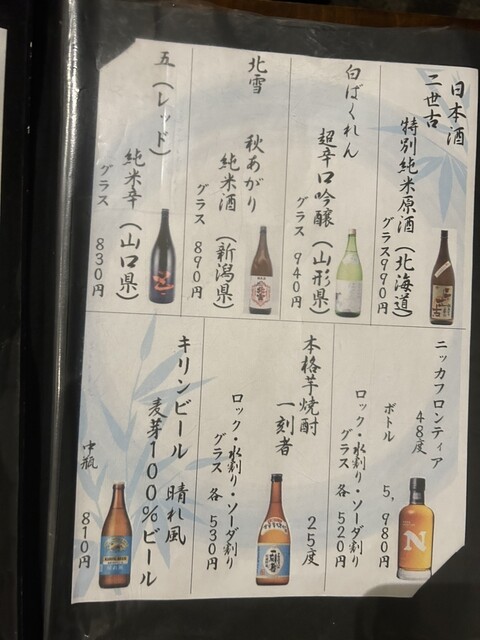 日本酒
二世古
特別純米原酒(北海道)
グラス990円
白ばくれん
超辛口吟醸(山形県)
グラス 940円
北雪 秋あがり
純米酒(新潟県)
グラス 890円
五(レッド)
純米辛(山口県)
グラス 830円
ニッカフロンティア
48度
ボトル 5,980円
ロック・水割り・ソーダ割り
グラス 各 520円
本格芋焼酎
一刻者 25度
ロック・水割り・ソーダ割り
グラス 各 530円
キリンビール 晴れ風
麦芽100%ビール
中瓶 810円
N